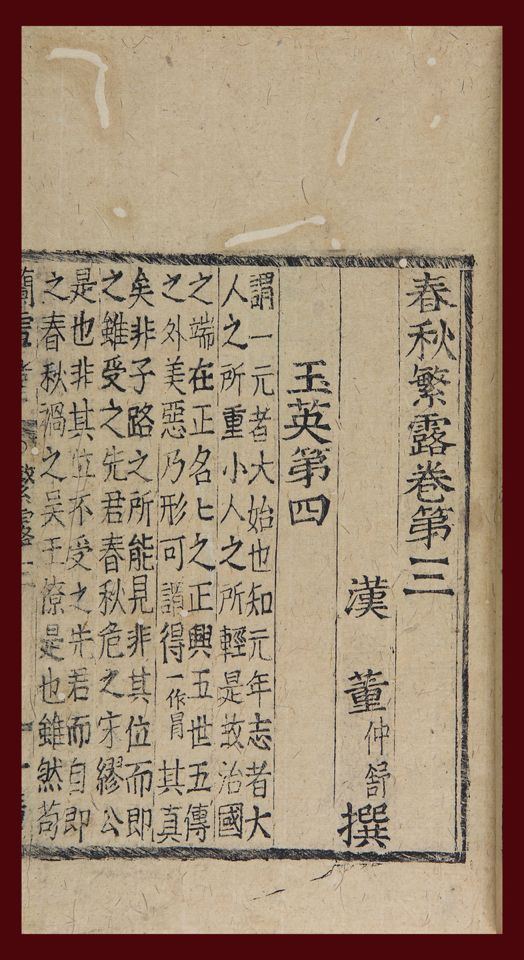 春秋繁露卷第三
漢 董仲舒 撰
玉英第四
謂一元者大始也知元年志者大
人之所重小人之所輕是故治國
之端在正名匕之正興五世五傳
之外美惡乃形可謂得一作其真
矣非子路之所能見非其位而即
之雖受之先君春秋危之宋繆公
是也非其位不受之先君而自即
之春秋禍之吴王僚是也雖然苟